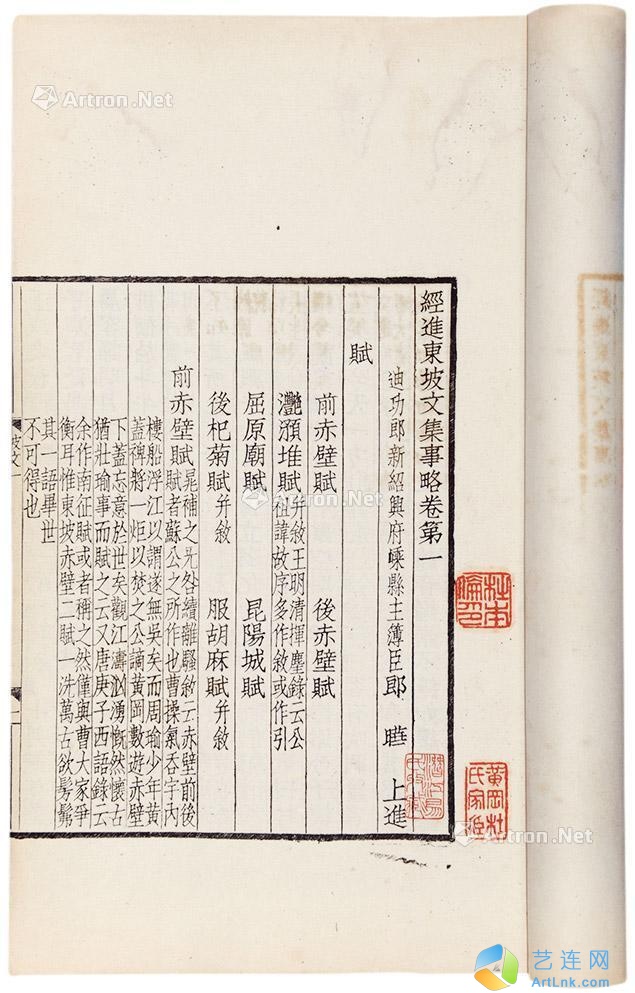 經進東坡文集事略卷第一
迪功郎新紹興府嵊縣主簿臣郎 曄 上進
賦
前赤壁賦 後赤壁賦
灩澦堆賦并敘王明清揮麈錄云公
祖諱故序多作敘或作引
屈原廟賦 昆陽城賦
後杞菊賦并敘 服胡麻賦并敘
前赤壁賦晁補之无咎續離騷敘云赤壁前後
賦者蘇公之所作也曹操氣吞宇內
樓船浮江以謂遂無吳矣而周瑜少年黃
蓋稗將一炬以焚之公謫黃岡數遊赤壁
下蓋忘意於世矣觀江濤洶湧慨然懷古
猶壯瑜事而賦之云又唐庚子西語錄云
余作南征賦或者稱之然僅與曹大家爭
衡耳惟東坡赤壁二賦一洗萬古欲髣髴
其一語畢世
不可得也
坡文一
一
黃岡杜
氏家臧
Artron.Net
Artron.Net
Artron.Net
Artron.Net
艺连网
ArtLnk.com